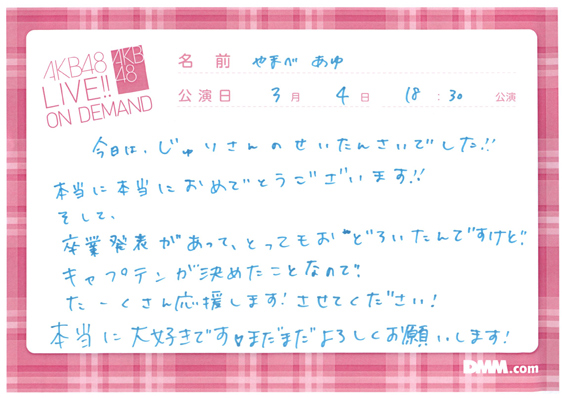 AKB48
LIVE!!
ON DEMAND
AKB
48
名前 やまべ あゆ
公演日 3月 4日 18:30 公演
今日は、じゅりさんのせいたんさいでした!!
本当に本当におめでとうございます!!
そして、
卒業発表があって、とってもおどろいたんですけど、
キャプテンが決めたことなので、
たーくさん応援します!させてください!
本当に大好きです♥まだまだよろしくお願いします!
DMM.com